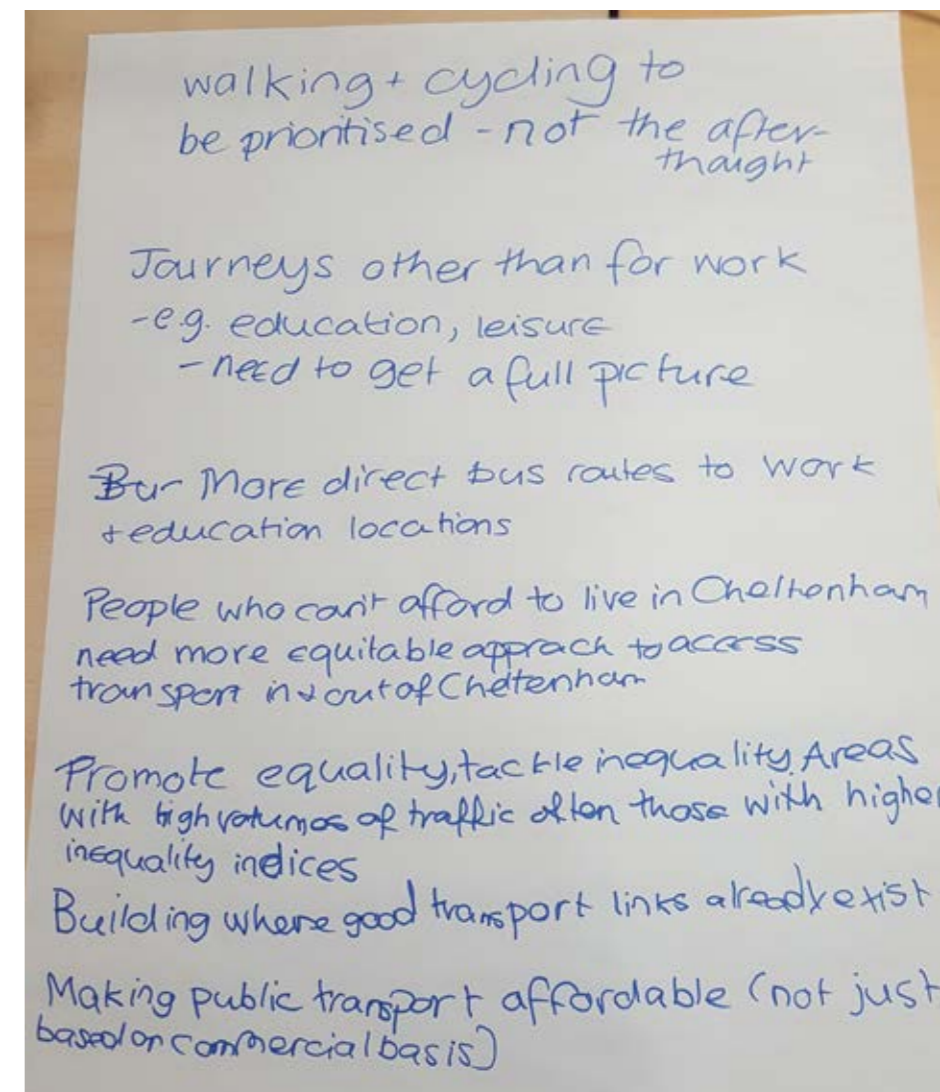 walking + cycling to
be prioritised - not the after-
thought
Journeys other than for work
- e.g. education, leisure
- need to get a full picture
More direct bus routes to work
+ education locations
People who can't afford to live in Cheltenham
need more equitable apprach to access
transport in & out of Cheltenham
Promote equality, tackle inequality. Areas
with high volumes of traffic often those with higher
inequality indices
Building where good transport links already exist
Making public transport affordable (not just
based on commercial basis)